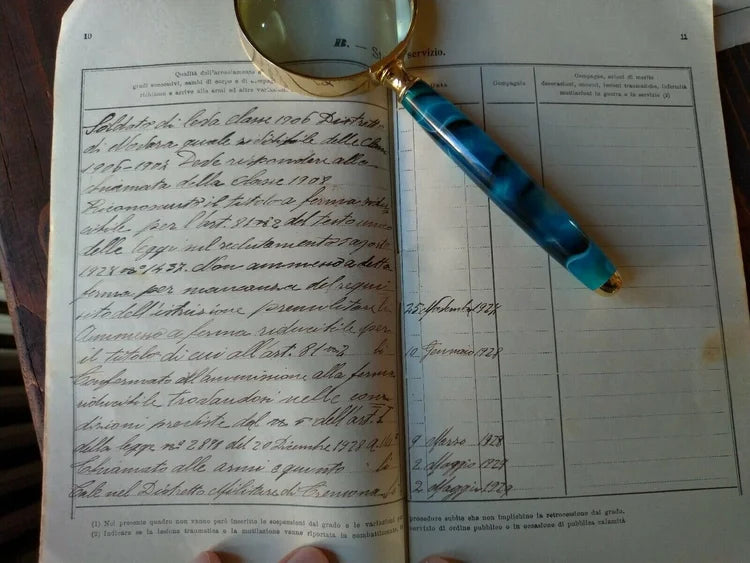 10
11
B. — St servizio.
Qualità dell'arruolamento
gradi successivi, cambi di corpo e di compag
richiamo e arrivo alle armi ed altre variaz
Data
Compagnie
Campagne, azioni di merito
decorazioni, encomi, lesioni traumatiche, infermità
mutilazioni in guerra e in servizio (2)
Soldato di leva classe 1906 Distretto
di Novara quale rivedibile delle classi
1906-1907 Deve rispondere alla
chiamata della classe 1908
Riconosciuto il titolo a ferma ridu-
cibile per l'art. 81 n° 2 del testo unico
delle leggi sul reclutamento 5 agosto
1928 n° 1437. Non ammesso a detta
ferma per mancanza del requi
sito dell'istruzione premilitare li 25 Novembre 1927
Ammesso a ferma riducibile per
il titolo di cui all'art. 81 n° 2 li 10 Gennaio 1928
Confermato all'ammissione alla ferma
riducibile trovandosi nelle con
dizioni previste dal n° 5 dell'art. I
della legge n° 2898 del 20 Dicembre 1928 9 Marzo 1929
Chiamato alle armi e giunto li 2 Maggio 1929
Tale nel Distretto Militare di Cremona li 2 Maggio 1929
(1) Nel presente quadro non vanno però inscritte le sospensioni dal grado e le variazioni procedure subite che non implichino la retrocessione dal grado.
(2) Indicare se la lesione traumatica o la mutilazione venne riportata in combattimento, servizio di ordine pubblico o in occasione di pubblica calamità